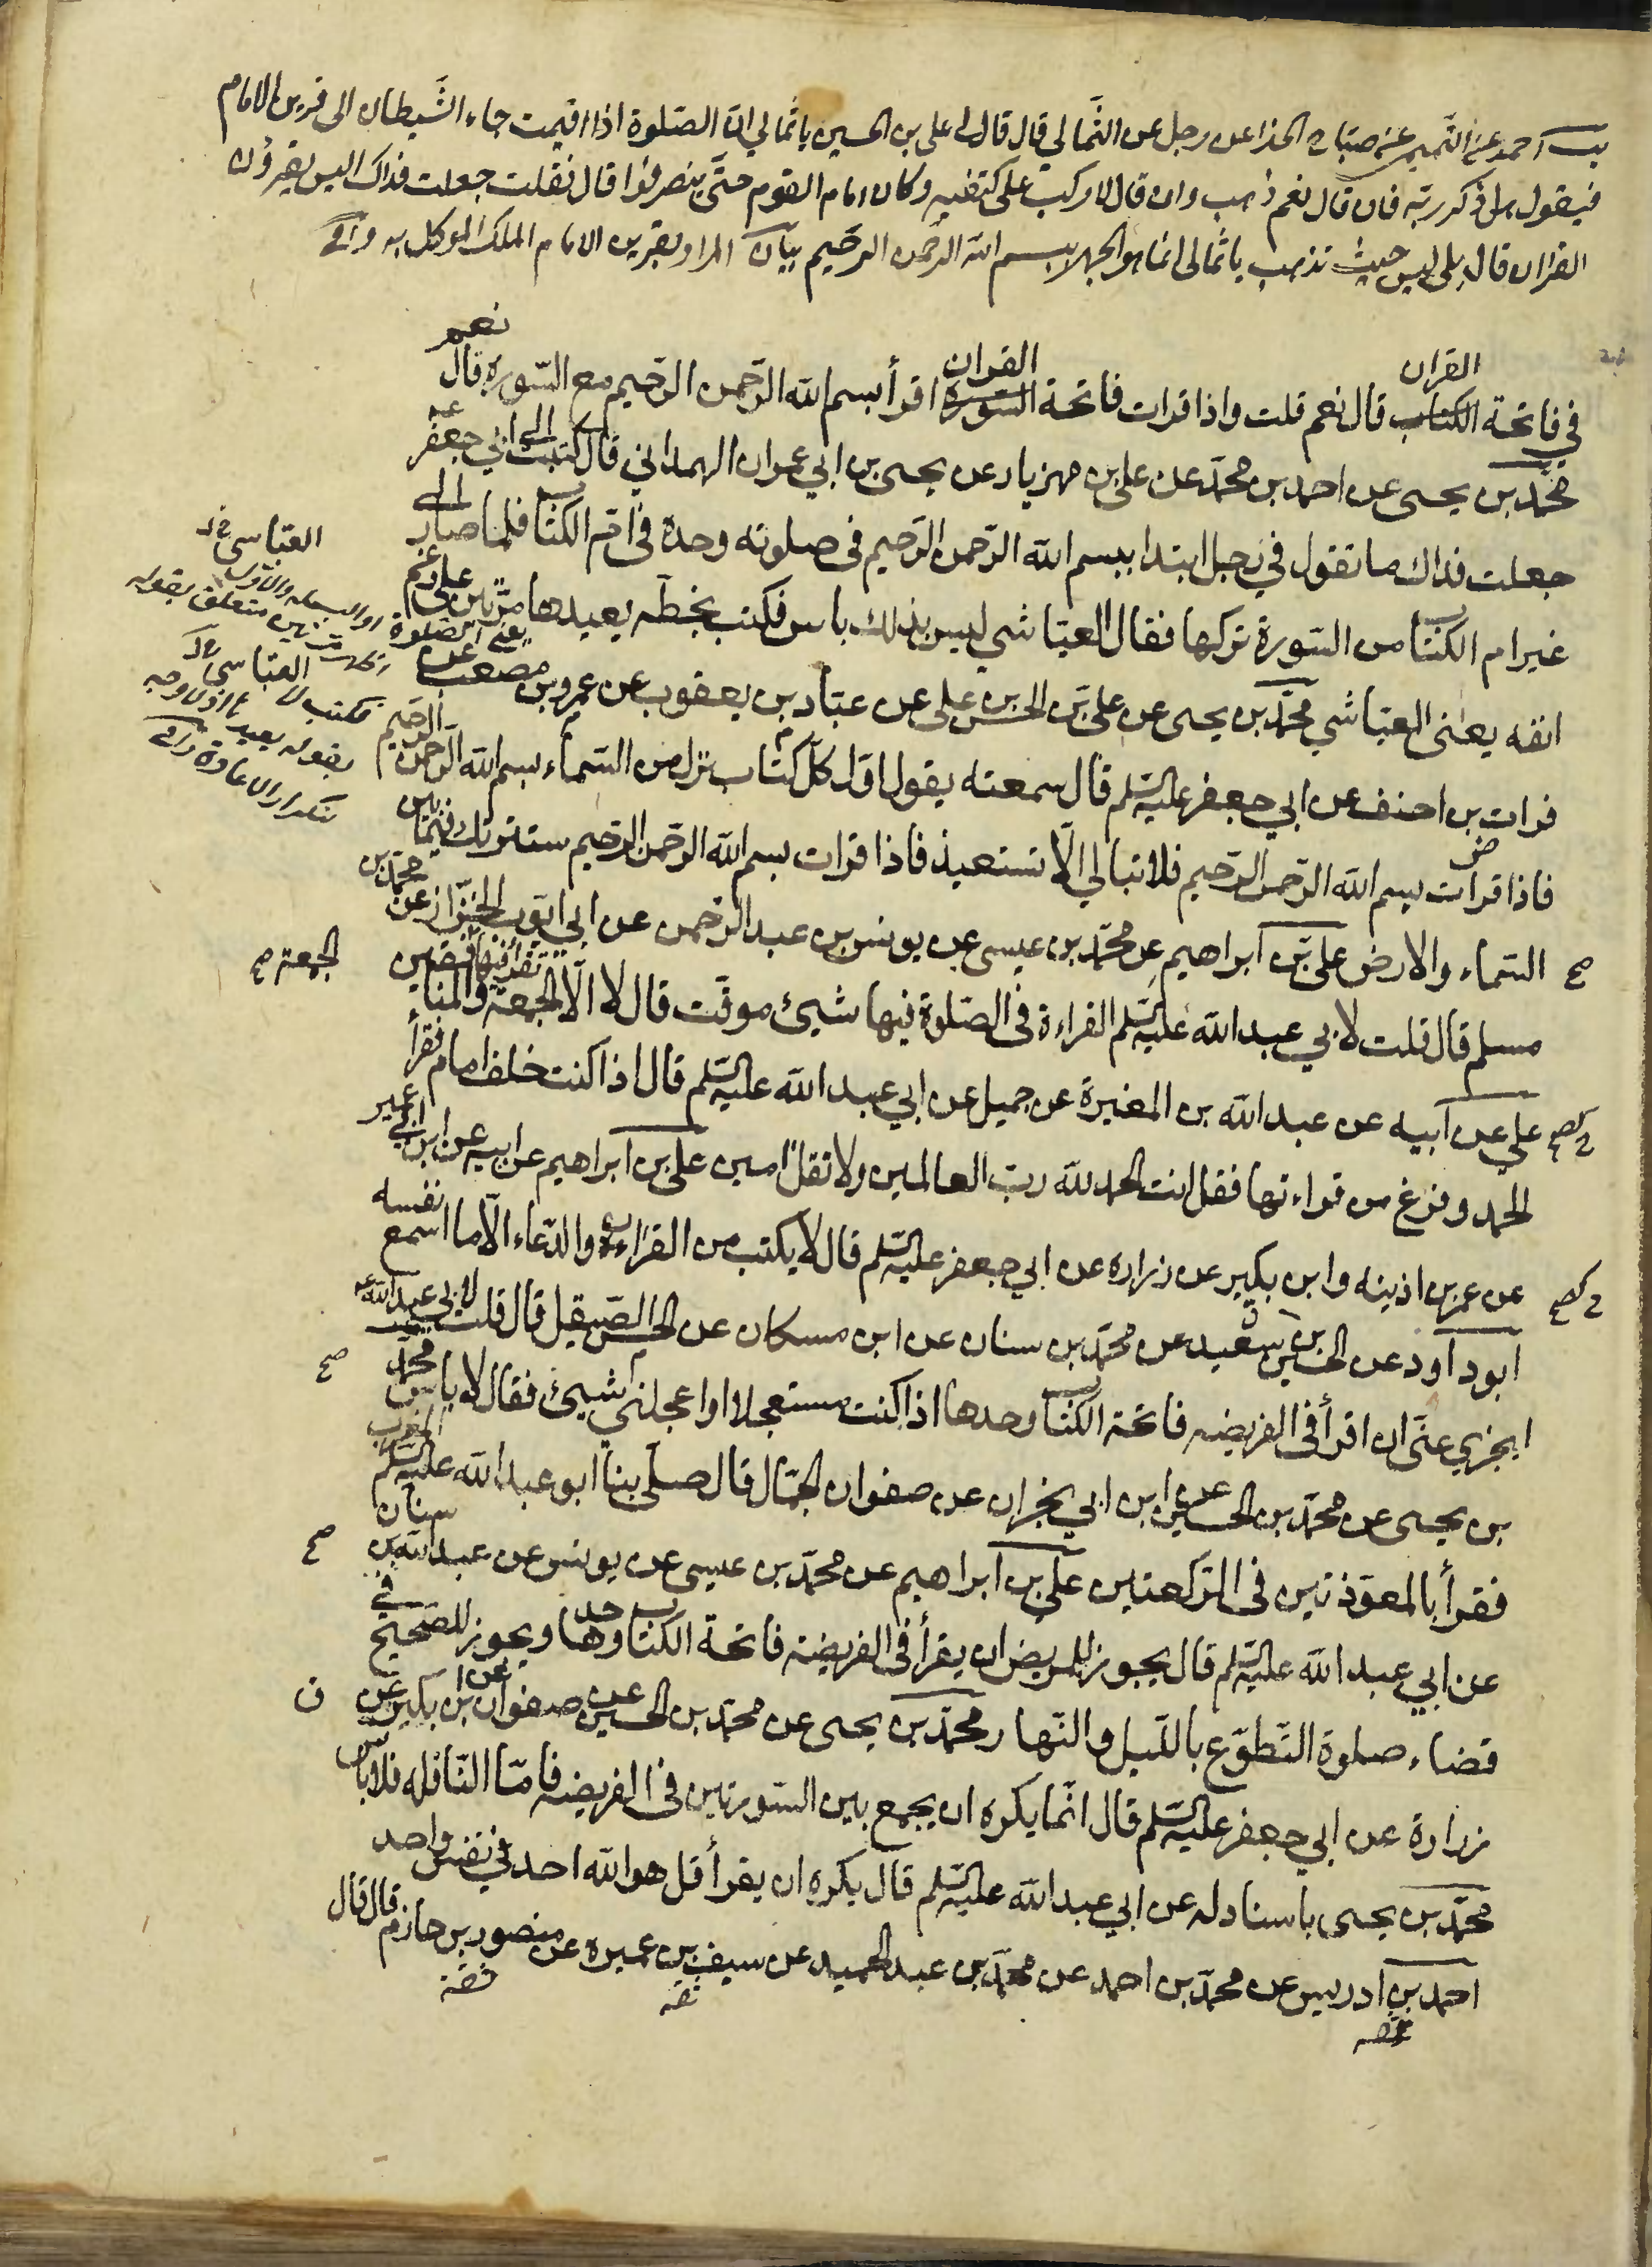 يب احمد عن التميمي عن صباح الحذاء عن رجل عن الثمالي قال قال لي علي بن الحسين يا ثمالي ان الصلوة اذا اقيمت جاء الشيطان الى قرين الامام
فيقول هل ذكر ربه فان قال نعم ذهب وان قال لا ركب على كتفيه وكان امام القوم حتى ينصرفوا قال فقلت جعلت فداك اليس يقرؤن
القران قال بلى ليس حيث تذهب يا ثمالي انما هو الجهر ببسم الله الرحمن الرحيم بيان المراد بقرين الامام الملك الموكل به وافي
القران القران نعم
في فاتحة الكتاب قال نعم قلت واذا قرات فاتحة السورة اقرأ بسم الله الرحمن الرحيم مع السورة قال
محمد بن يحيى عن احمد بن محمد عن علي بن مهزيار عن يحيى بن ابي عمران الهمداني قال كتبت الى ابي جعفر عه
جعلت فداك ما تقول في رجل ابتدا ببسم الله الرحمن الرحيم في صلوته وحده في ام الكتاب فلما صار الى
غير ام الكتاب من السورة تركها فقال العياشي ليس بذلك باس فكتب بخطه يعيدها مرتين على رغم
انفه يعنى العياشي محمد بن يحيى عن علي بن الحسن بن علي عن عباد بن يعقوب عن عمرو بن مصعب عن
فرات بن احنف عن ابي جعفر عليه السلم قال سمعته يقول اول كل كتاب نزل من السماء بسم الله الرحمن الرحيم
فاذا قرات بسم الله الرحمن الرحيم فلا تبالي الا تستعيذ فاذا قرات بسم الله الرحمن الرحيم سترتك فيما بين
السماء والارض علي بن ابراهيم عن محمد بن عيسى عن يونس بن عبد الرحمن عن ابي ايوب الخزاز عن محمد بن
مسلم قال قلت لابي عبد الله عليه السلم القراءة في الصلوة فيها شيئ موقت قال لا الا الجمعة تقرأ فيها والمنافقين
علي عن ابيه عن عبد الله بن المغيرة عن جميل عن ابي عبد الله عليه السلم قال اذا كنت خلف امام فقرأ
الحمد وفرغ من قراءتها فقل انت الحمد لله رب العالمين ولا تقل امين علي بن ابراهيم عن ابيه عن ابن ابي عمير
عن عمر بن اذينه وابن بكير عن زراره عن ابي جعفر عليه السلم قال لا يكتب من القراءة والدعاء الا ما اسمع نفسه
ابو داود عن الحسين بن سعيد عن محمد بن سنان عن ابن مسكان عن الحسن الصيقل قال قلت لابي عبد الله عه
ايجزي عنى ان اقرأ في الفريضه فاتحة الكتاب وحدها اذا كنت مستعجلا او اعجلني شيئ فقال لا باس محمد
بن يحيى عن محمد بن الحسين عن ابن ابي نجران عن صفوان الجمال قال صلى بنا ابو عبد الله عليه السلم المغرب
فقرأ بالمعوذتين في الركعتين علي بن ابراهيم عن محمد بن عيسى عن يونس عن عبد الله بن سنان
عن ابي عبد الله عليه السلم قال يجوز للمريض ان يقرأ في الفريضه فاتحة الكتاب وحدها ويجوز للصحيح في
قضاء صلوة التطوع بالليل والنهار محمد بن يحيى عن محمد بن الحسين عن صفوان عن ابن بكير عن
زرارة عن ابي جعفر عليه السلم قال انما يكره ان يجمع بين السورتين في الفريضه فاما النافله فلا باس
محمد بن يحيى باسناد له عن ابي عبد الله عليه السلم قال يكره ان يقرأ قل هو الله احد في نفس واحد
احمد بن ادريس عن محمد بن احمد عن محمد بن عبد الحميد عن سيف بن عميره عن منصور بن حازم قال قال
ثقه ثقه ثقه
العباسي خ ل
يعنى الصلوة او البسمله والاول
مرتين متعلق بقوله
فكتب لا
العباسي خ ل
بقوله يعيد
تكرار الاعادة وافي
الجمعة صح